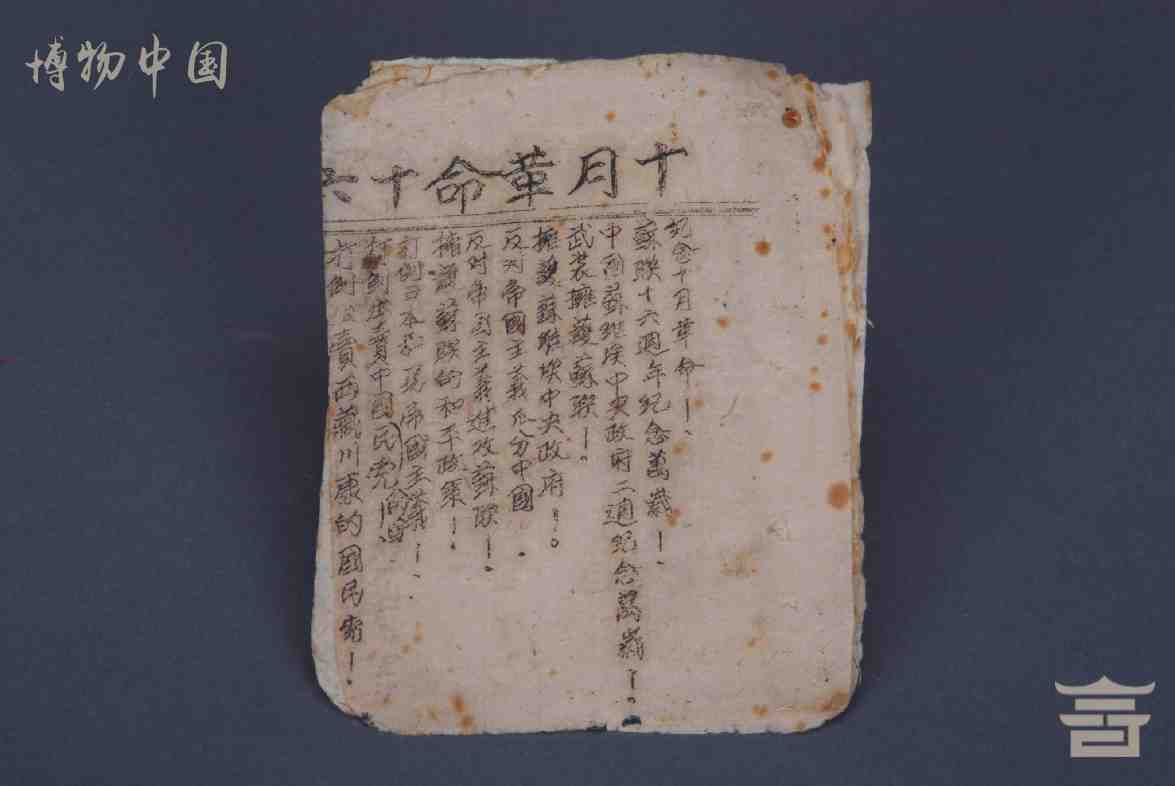 博物中国
十月革命十六
紀念十月革命！
蘇联十六週年紀念萬歲！
中國蘇維埃中央政府二週紀念萬歲！
武装擁護蘇联！
擁護蘇維埃中央政府！
反对帝國主義瓜分中國
反对帝國主義進攻蘇联！
擁護蘇联的和平政策！
打倒日本和 帝國主義！
打倒出賣中國民党
打倒 賣西藏川康的國民党！